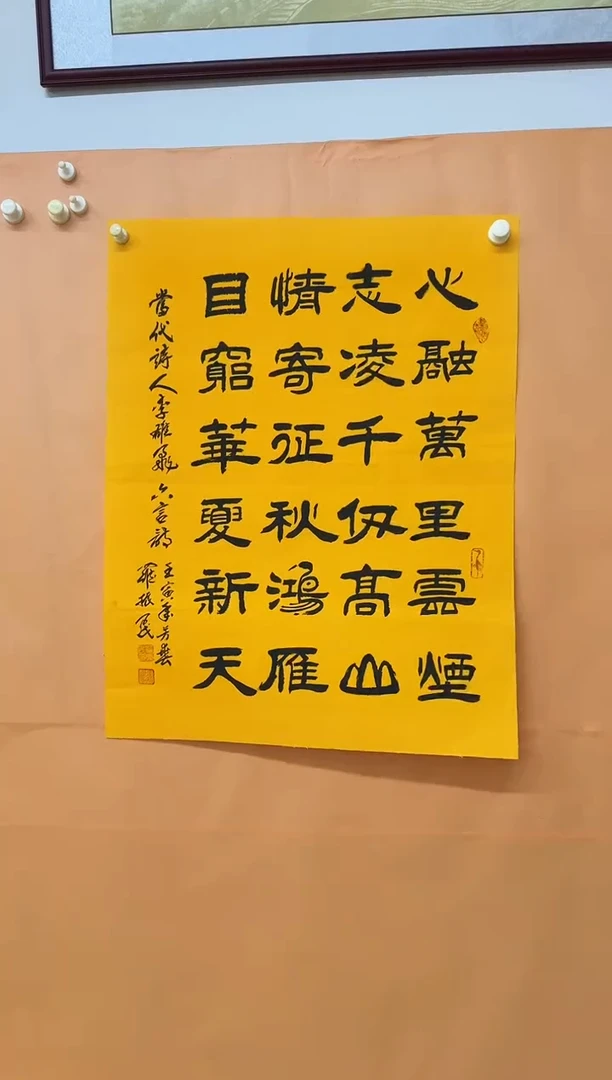 心融萬里雲煙
志凌千仭高山
情寄征秋鴻雁
目窮華夏新天
當代詩人李雄飛六言詩
壬寅年芳華
羅振民